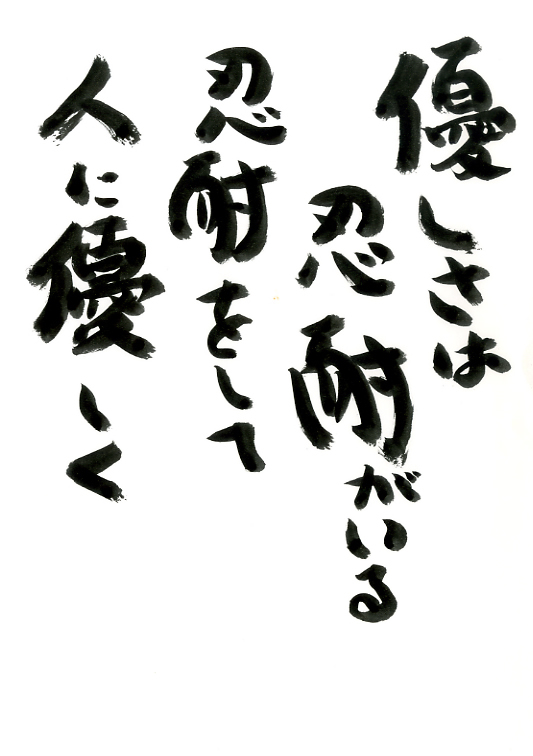 優しさは
忍耐がいる
忍耐をして
人に優しく